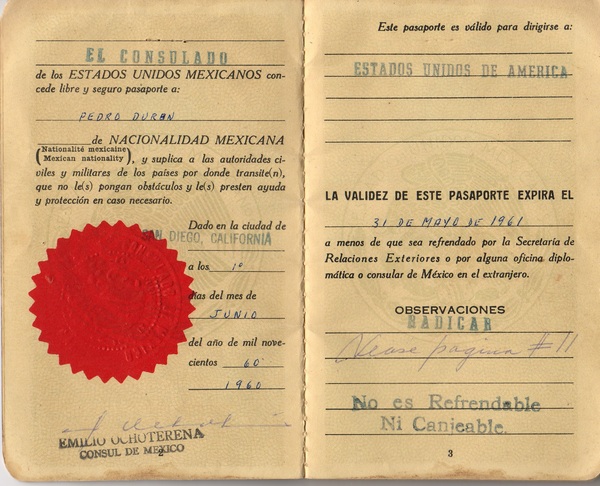 EL CONSULADO
de los ESTADOS UNIDOS MEXICANOS con-
cede libre y seguro pasaporte a:
PEDRO DURAN
de NACIONALIDAD MEXICANA
(Nationalité mexicaine
Mexican nationality), y suplica a las autoridades ci-
viles y militares de los países por donde transite(n),
que no le(s) pongan obstáculos y le(s) presten ayuda
y protección en caso necesario.
Dado en la ciudad de
SAN DIEGO, CALIFORNIA
a los 1º
días del mes de
JUNIO
del año de mil nove-
cientos 60
1960
EMILIO OCHOTERENA
CONSUL DE MEXICO
2
Este pasaporte es válido para dirigirse a:
ESTADOS UNIDOS DE AMERICA
LA VALIDEZ DE ESTE PASAPORTE EXPIRA EL
31 DE MAYO DE 1961
a menos de que sea refrendado por la Secretaría de
Relaciones Exteriores o por alguna oficina diplo-
mática o consular de México en el extranjero.
OBSERVACIONES
RADICAR
Vease página #11
No es Refrendable
Ni Canjeable.
3